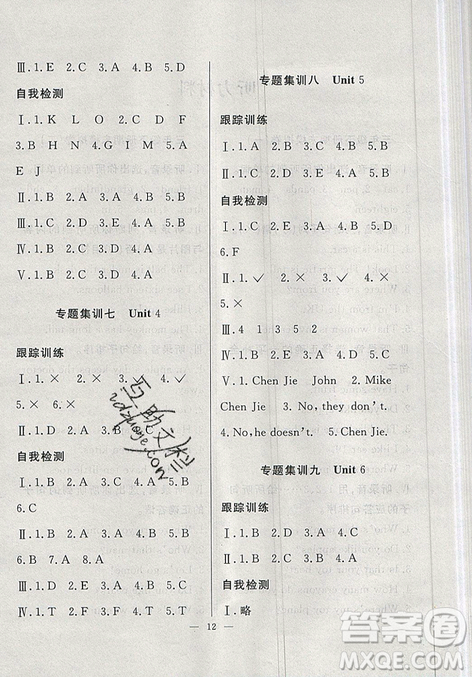 Ⅲ.1.E 2.C 3.A 4.B 5.D
自我检测
Ⅰ.1.K L O 2.C D
3.B H N 4.G I M S 5.A
E J
Ⅱ.1.A 2.B 3.C 4.A 5.B
Ⅲ.1.D 2.E 3.C 4.B 5.A
Ⅳ.1.B 2.D 3.A 4.C
Ⅴ.1.B 2.C 3.D 4.E 5.A
专题集训七 Unit 4
跟踪训练
Ⅰ.1.× 2.× 3.× 4.✓
5.× 6.×
Ⅱ.1.D 2.A 3.B 4.C
自我检测
Ⅰ.1.B 2.C 3.A 4.B
6.C
Ⅱ.1.D 2.A 3.C
7.B 8.A
Ⅲ.1.D 2.E 3.A 4.C 5.B
Ⅳ.1.T 2.F 3.F 4.T 5.F
专题集训八 Unit 5
跟踪训练
Ⅰ.1.B 2.A 3.C 4.A
Ⅱ.1.B 2.C 3.A 4.C 5.B
自我检测
Ⅰ.1.D 2.A 3.C 4.B 5.E
6.F
Ⅱ.1.✓ 2.× 3.× 4.✓
5.×
Ⅲ.4 1 3 5 2
Ⅳ.1.C 2.B 3.A 4.B 5.C
Ⅴ.1.Chen Jie John 2.Mike
Chen Jie 3.No, they don't.
4.No, he doesn't. 5.red
专题集训九 Unit 6
跟踪训练
Ⅰ.1.B 2.A 3.C 4.C 5.A
Ⅱ.1.D 2.A 3.B 4.C
自我检测
Ⅰ.略
12
答案圈
MXQE.COM